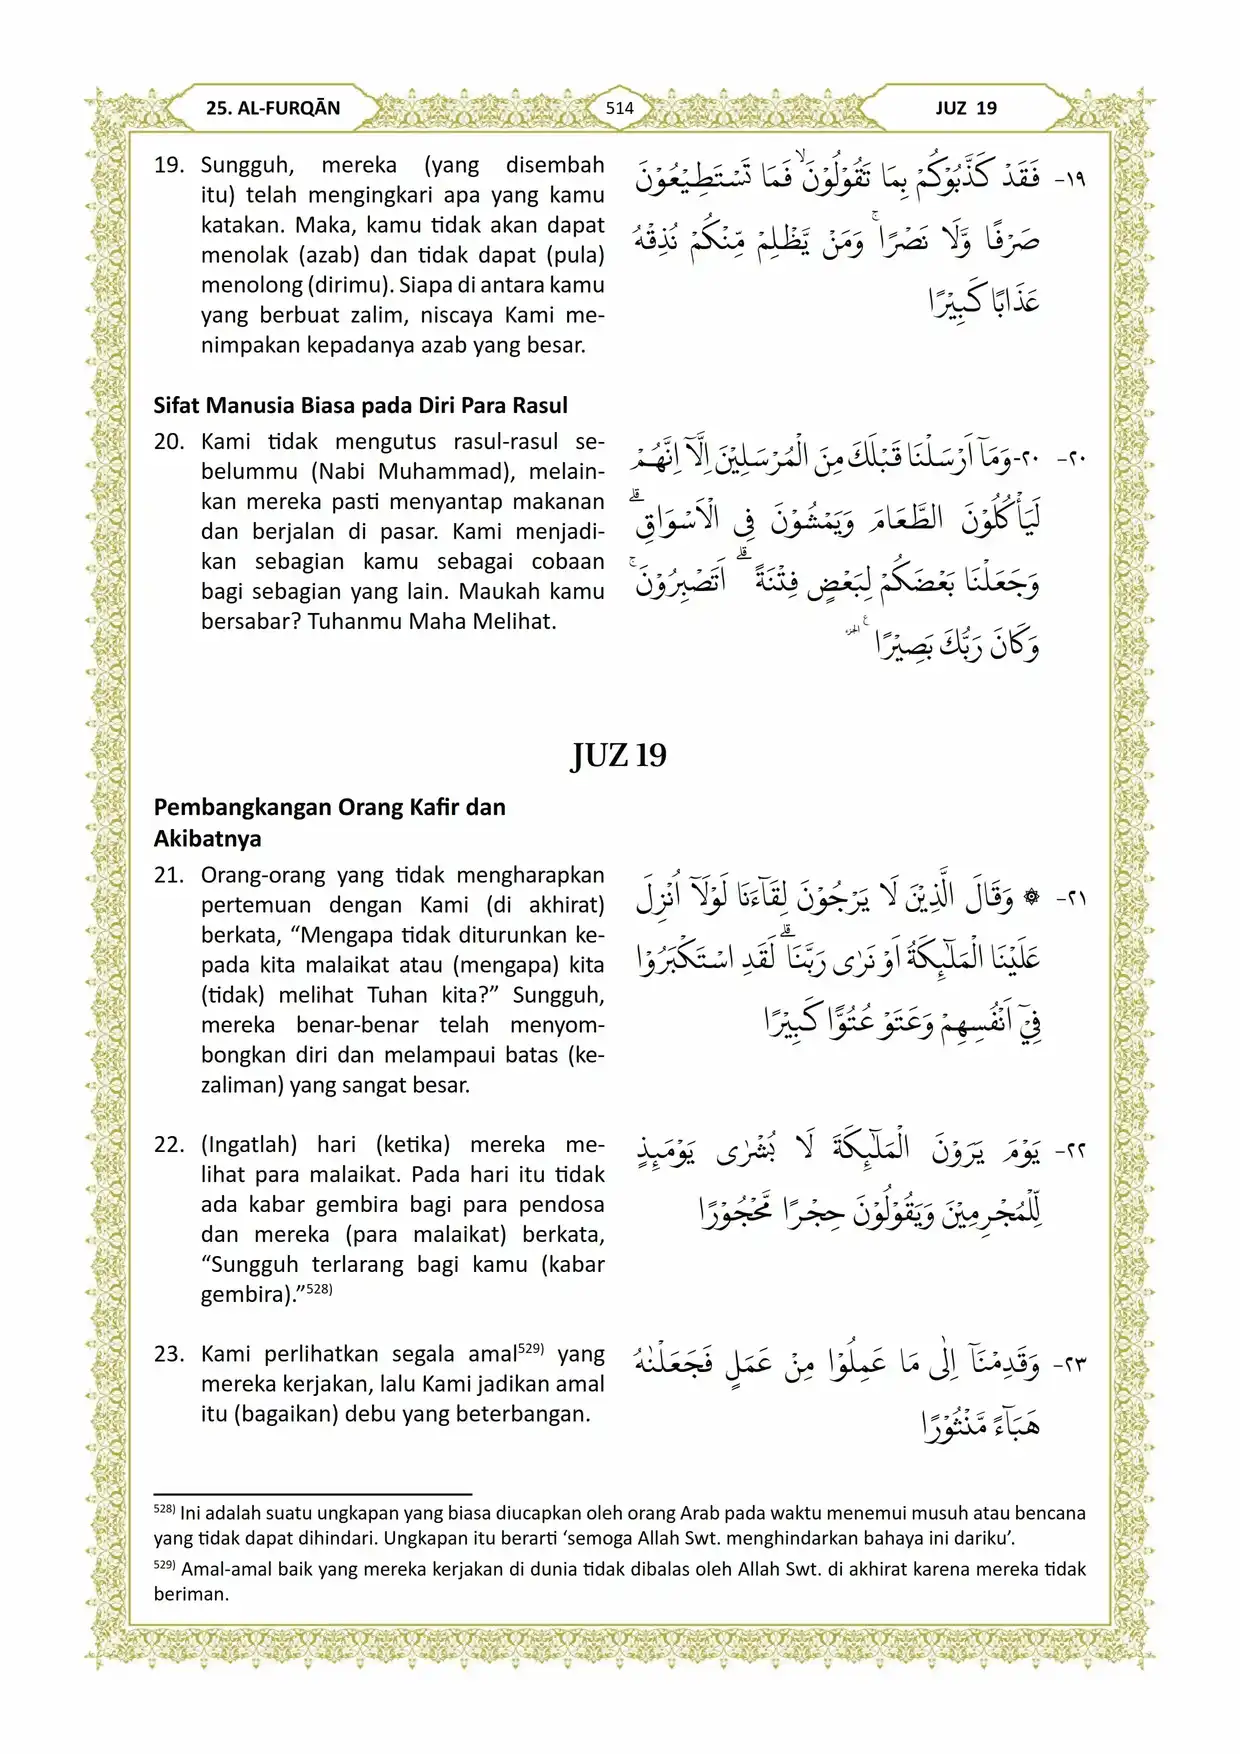 25. AL-FURQĀN
514
JUZ 19
19. Sungguh, mereka (yang disembah
itu) telah mengingkari apa yang kamu
katakan. Maka, kamu tidak akan dapat
menolak (azab) dan tidak dapat (pula)
menolong (dirimu). Siapa di antara kamu
yang berbuat zalim, niscaya Kami me-
nimpakan kepadanya azab yang besar.
١٩- فَقَدْ كَذَّبُوْكُمْ بِمَا تَقُوْلُوْنَۙ فَمَا تَسْتَطِيْعُوْنَ
صَرْفًا وَّلَا نَصْرًاۚ وَمَنْ يَّظْلِمْ مِّنْكُمْ نُذِقْهُ
عَذَابًا كَبِيْرًا
Sifat Manusia Biasa pada Diri Para Rasul
20. Kami tidak mengutus rasul-rasul se-
belummu (Nabi Muhammad), melain-
kan mereka pasti menyantap makanan
dan berjalan di pasar. Kami menjadi-
kan sebagian kamu sebagai cobaan
bagi sebagian yang lain. Maukah kamu
bersabar? Tuhanmu Maha Melihat.
٢٠- ٢٠-وَمَآ اَرْسَلْنَا قَبْلَكَ مِنَ الْمُرْسَلِيْنَ اِلَّآ اِنَّهُمْ
لَيَأْكُلُوْنَ الطَّعَامَ وَيَمْشُوْنَ فِى الْاَسْوَاقِۗ
وَجَعَلْنَا بَعْضَكُمْ لِبَعْضٍ فِتْنَةً ۗ اَتَصْبِرُوْنَۚ
وَكَانَ رَبُّكَ بَصِيْرًا ࣖ الجزء
JUZ 19
Pembangkangan Orang Kafir dan
Akibatnya
21. Orang-orang yang tidak mengharapkan
pertemuan dengan Kami (di akhirat)
berkata, “Mengapa tidak diturunkan ke-
pada kita malaikat atau (mengapa) kita
(tidak) melihat Tuhan kita?” Sungguh,
mereka benar-benar telah menyom-
bongkan diri dan melampaui batas (ke-
zaliman) yang sangat besar.
٢١- ۞ وَقَالَ الَّذِيْنَ لَا يَرْجُوْنَ لِقَاۤءَنَا لَوْلَآ اُنْزِلَ
عَلَيْنَا الْمَلٰۤىِٕكَةُ اَوْ نَرٰى رَبَّنَاۗ لَقَدِ اسْتَكْبَرُوْا
فِيْٓ اَنْفُسِهِمْ وَعَتَوْ عُتُوًّا كَبِيْرًا
22. (Ingatlah) hari (ketika) mereka me-
lihat para malaikat. Pada hari itu tidak
ada kabar gembira bagi para pendosa
dan mereka (para malaikat) berkata,
“Sungguh terlarang bagi kamu (kabar
gembira).”528)
٢٢- يَوْمَ يَرَوْنَ الْمَلٰۤىِٕكَةَ لَا بُشْرٰى يَوْمَىِٕذٍ
لِّلْمُجْرِمِيْنَ وَيَقُوْلُوْنَ حِجْرًا مَّحْجُوْرًا
23. Kami perlihatkan segala amal529) yang
mereka kerjakan, lalu Kami jadikan amal
itu (bagaikan) debu yang beterbangan.
٢٣- وَقَدِمْنَآ اِلٰى مَا عَمِلُوْا مِنْ عَمَلٍ فَجَعَلْنٰهُ
هَبَاۤءً مَّنْثُوْرًا
528) Ini adalah suatu ungkapan yang biasa diucapkan oleh orang Arab pada waktu menemui musuh atau bencana
yang tidak dapat dihindari. Ungkapan itu berarti ‘semoga Allah Swt. menghindarkan bahaya ini dariku’.
529) Amal-amal baik yang mereka kerjakan di dunia tidak dibalas oleh Allah Swt. di akhirat karena mereka tidak
beriman.